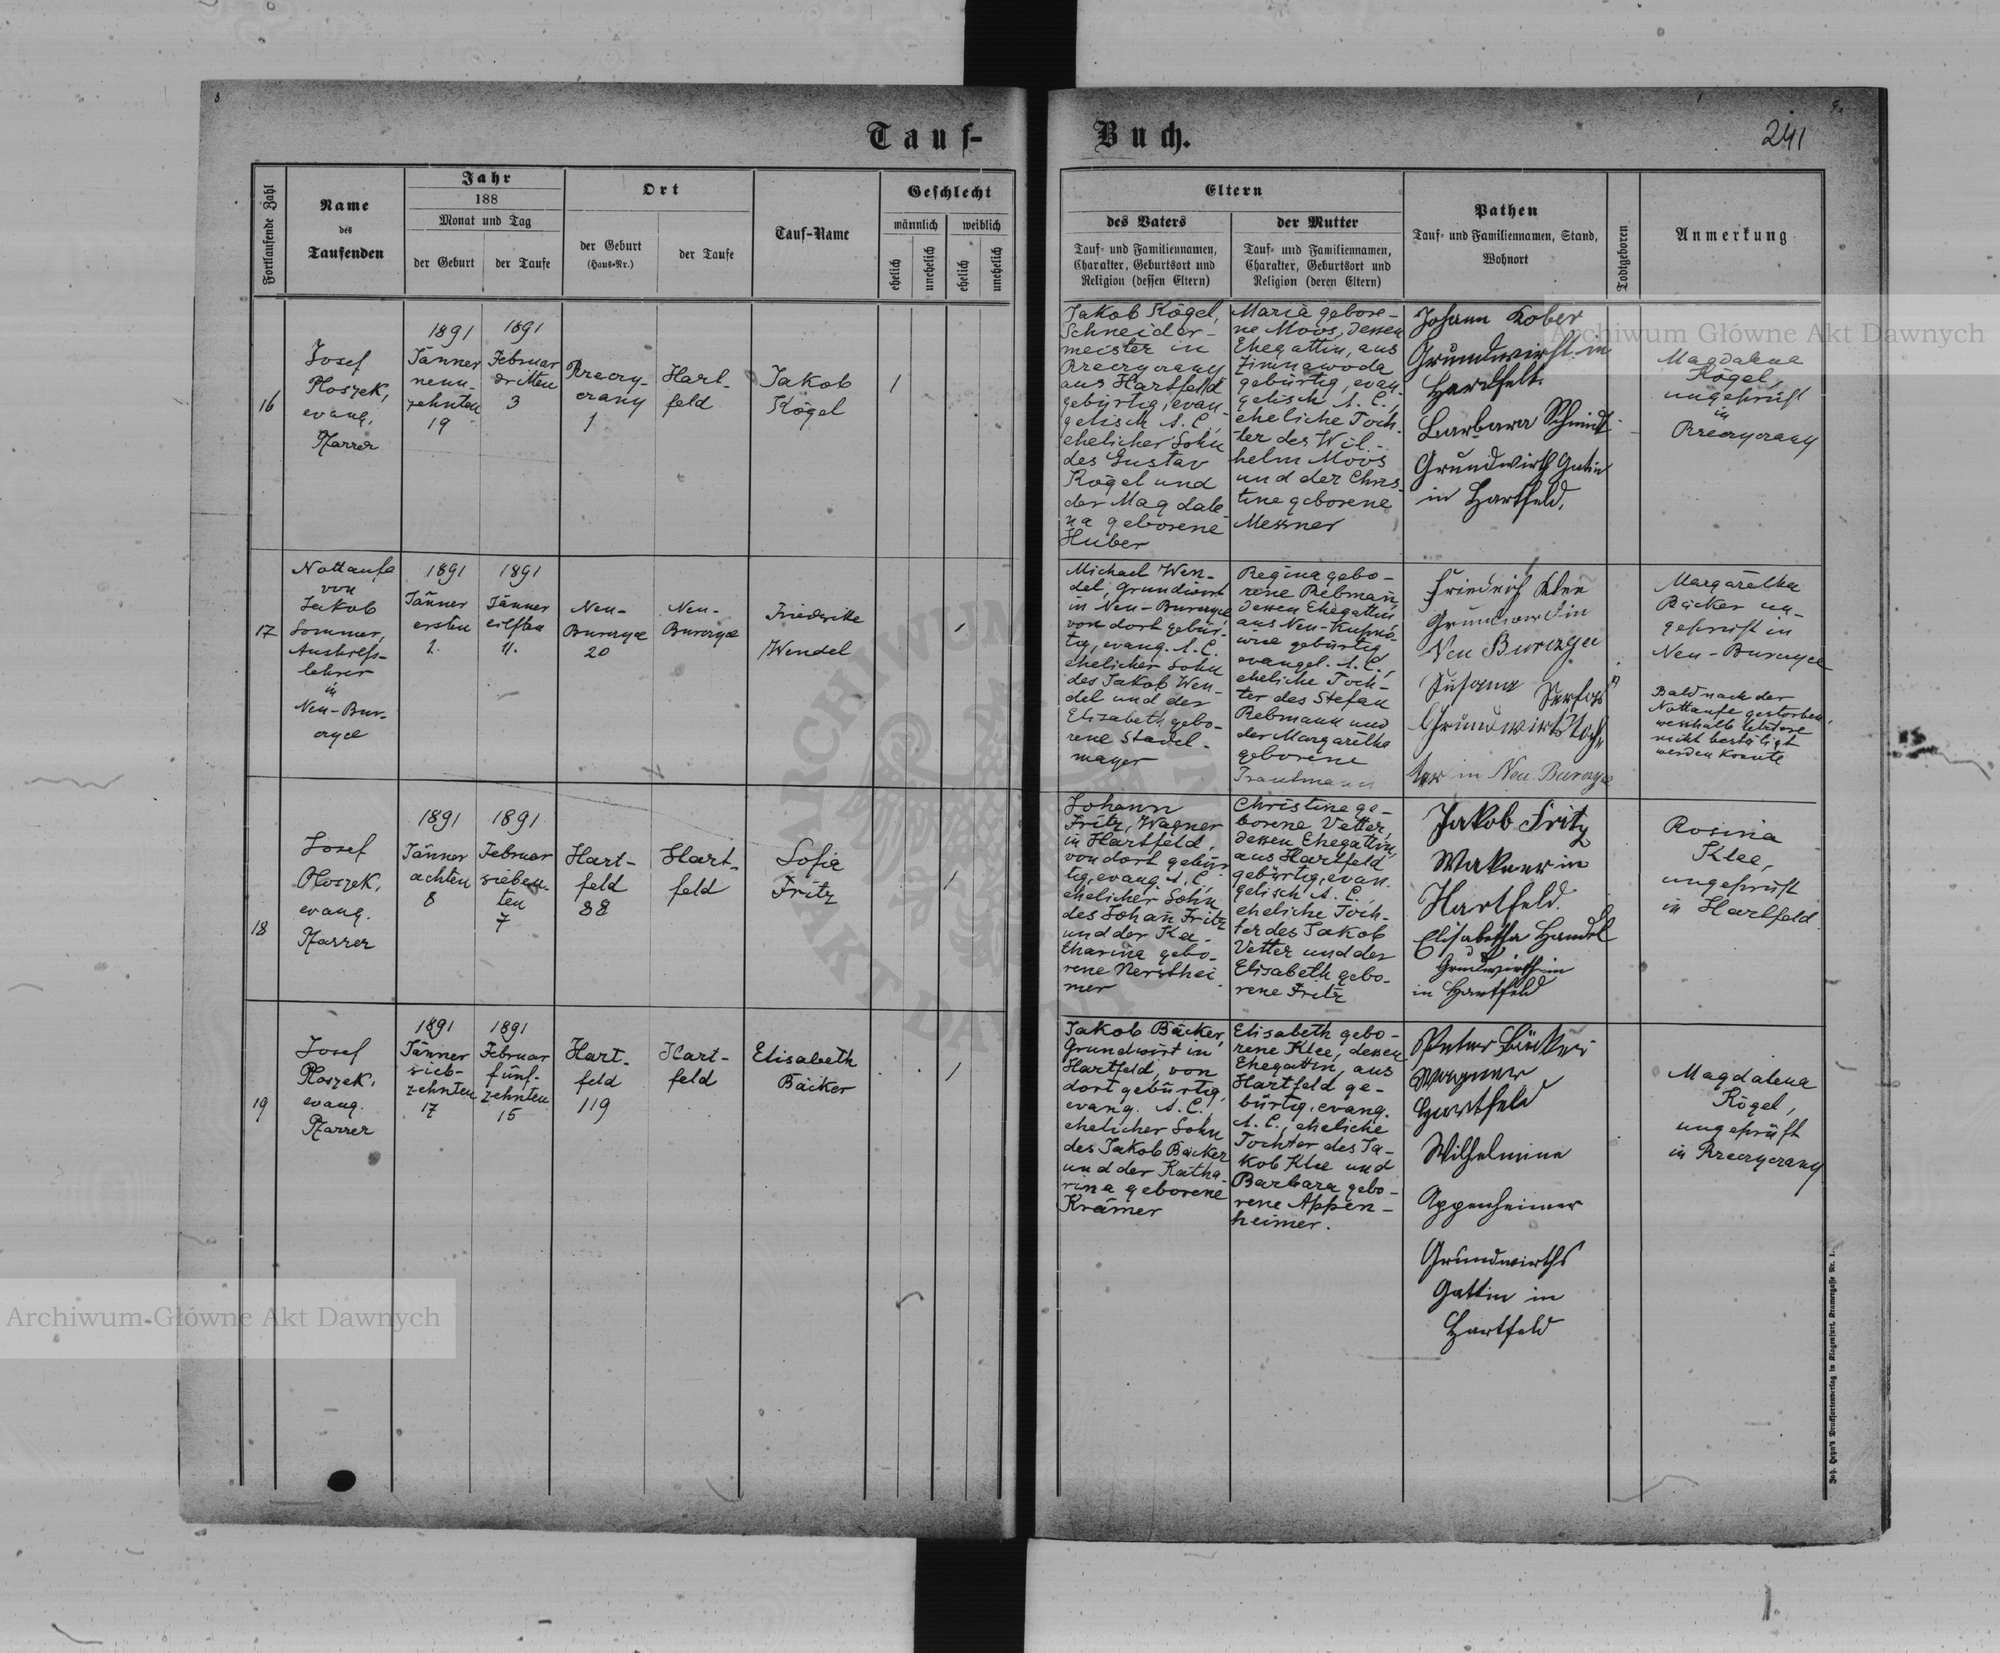 8
9.
Tauf-
Buch.
241
Fortlaufende Zahl
Name
des
Taufenden
Jahr
188
Monat und Tag
der Geburt
der Taufe
Ort
der Geburt
(Haus-Nr.)
der Taufe
Tauf-Name
Geschlecht
männlich
weiblich
ehelich
unehelich
ehelich
unehelich
Eltern
des Vaters
Tauf- und Familiennamen,
Charakter, Geburtsort und
Religion (dessen Eltern)
der Mutter
Tauf- und Familiennamen,
Charakter, Geburtsort und
Religion (deren Eltern)
Pathen
Tauf- und Familiennamen, Stand,
Wohnort
Todtgeboren
Anmerkung
16
Josef
Ploszek,
evang.
Pfarrer
1891
Jänner
neun-
zehnten
19
1891
Februar
dritten
3
Rzeczy-
czany
1
Hart-
feld
Jakob
Kögel
1
Jakob Kögel,
Schneider-
meister in
Rzeczyczany
aus Hartfeld
gebürtig, evan-
gelisch A. C.,
ehelicher Sohn
des Gustav
Kögel und
der Magdale-
na geborene
Huber
Maria gebore-
ne Moos, dessen
Ehegattin, aus
Zimnawoda
gebürtig, evan-
gelisch A. C.,
eheliche Toch-
ter des Wil-
helm Moos
und der Chris-
tine geborene
Messner
Johann Kober
Grundwirth in
Hartfeld.
Barbara Schmidt
Grundwirth Gattin
in Hartfeld.
Magdalena
Kögel,
ungeprüft
in
Rzeczyczany
17
Nottaufe
von
Jakob
Sommer,
Aushilfs-
lehrer
in
Neu-Bur-
czyce
1891
Jänner
ersten
1.
1891
Jänner
eilften
11.
Neu-
Burczyce
20
Neu-
Burczyce
Friedericke
Wendel
1
Michael Wen-
del, Grundwirt
in Neu-Burczyce,
von dort gebür-
tig, evang. A. C.
ehelicher Sohn
des Jakob Wen-
del und der
Elisabeth gebo-
rene Stadel-
mayer
Regina gebo-
rene Rebmañ,
dessen Ehegattin,
aus Neu-Kupno-
wice gebürtig,
evangel. A. C.,
eheliche Toch-
ter des Stefan
Rebmann und
der Margaretha
geborene
Trautmann
Friedrich Klee
Grundwirt in
Neu Burczyce
Susana
Grundwirts Toch-
ter in Neu Burczyce
Margaretha
Bäcker un-
geprüft in
Neu-Burczyce
Bald nach der
Nottaufe gestorben,
weshalb letztere
nicht bestätigt
werden konnte
18
Josef
Ploszek,
evang.
Pfarrer
1891
Jänner
achten
8
1891
Februar
sieben-
ten
7
Hart-
feld
88
Hart-
feld
Sofia
Fritz
1
Johann
Fritz, Wagner
in Hartfeld,
von dort gebür-
tig, evang. A. C.,
ehelicher Sohn
des Johañ Fritz
und der Ka-
tharina gebo-
rene Nersthei-
mer
Christine ge-
borene Vetter,
dessen Ehegattin,
aus Hartfeld
gebürtig, evan-
gelisch A. C.,
eheliche Toch-
ter des Jakob
Vetter und der
Elisabeth gebo-
rene Fritz
Jakob Fritz
Wakner in
Hartfeld.
Elisabetha Handel
Grundwirthin
in Hartfeld
Rosina
Klee,
ungeprüft
in Hartfeld
19
Josef
Ploszek,
evang.
Pfarrer
1891
Jänner
sieb-
zehnten
17
1891
Februar
fünf-
zehnten
15
Hart-
feld
119
Hart-
feld
Elisabeth
Bäcker
1
Jakob Bäcker,
Grundwirt in
Hartfeld, von
dort gebürtig,
evang. A. C.,
ehelicher Sohn
des Jakob Bäcker
und der Katha-
rina geborene
Krämer
Elisabeth gebo-
rene Klee, dessen
Ehegattin, aus
Hartfeld ge-
bürtig, evang.
A. C., eheliche
Tochter des Ja-
kob Klee und
Barbara gebo-
rene Appen-
heimer.
Peter Bäcker
Wagner
Hartfeld
Wilhelmine
Appenheimer
Grundwirths
Gattin in
Hartfeld
Magdalena
Kögel,
ungeprüft
in Rzeczyczany
Joh. Heyn's Drucksortenverlag in Klagenfurt, Kramergasse Nr. 1.
Archiwum Główne Akt Dawnych
Archiwum Główne Akt Dawnych